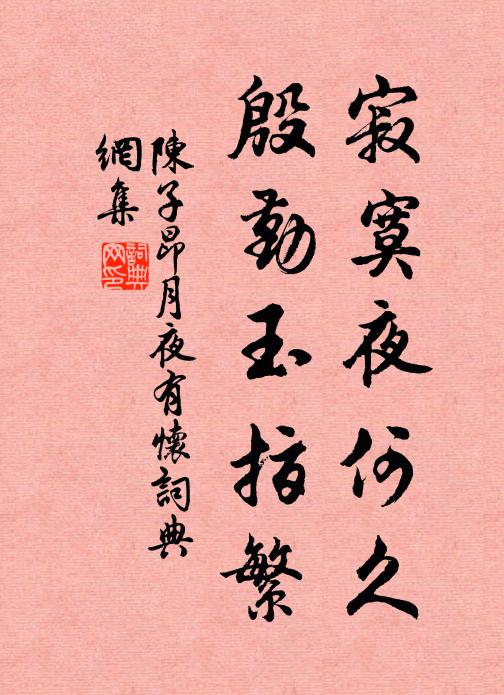 寂寞夜何久
殷勤玉指繁
陳子昂月夜有懷詞典
網集
詞典網印